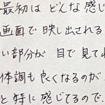 最初はどんな感じ
画面で映し出される
い部分が目で見てれ
体調も良くなるが
と特に感じてるので